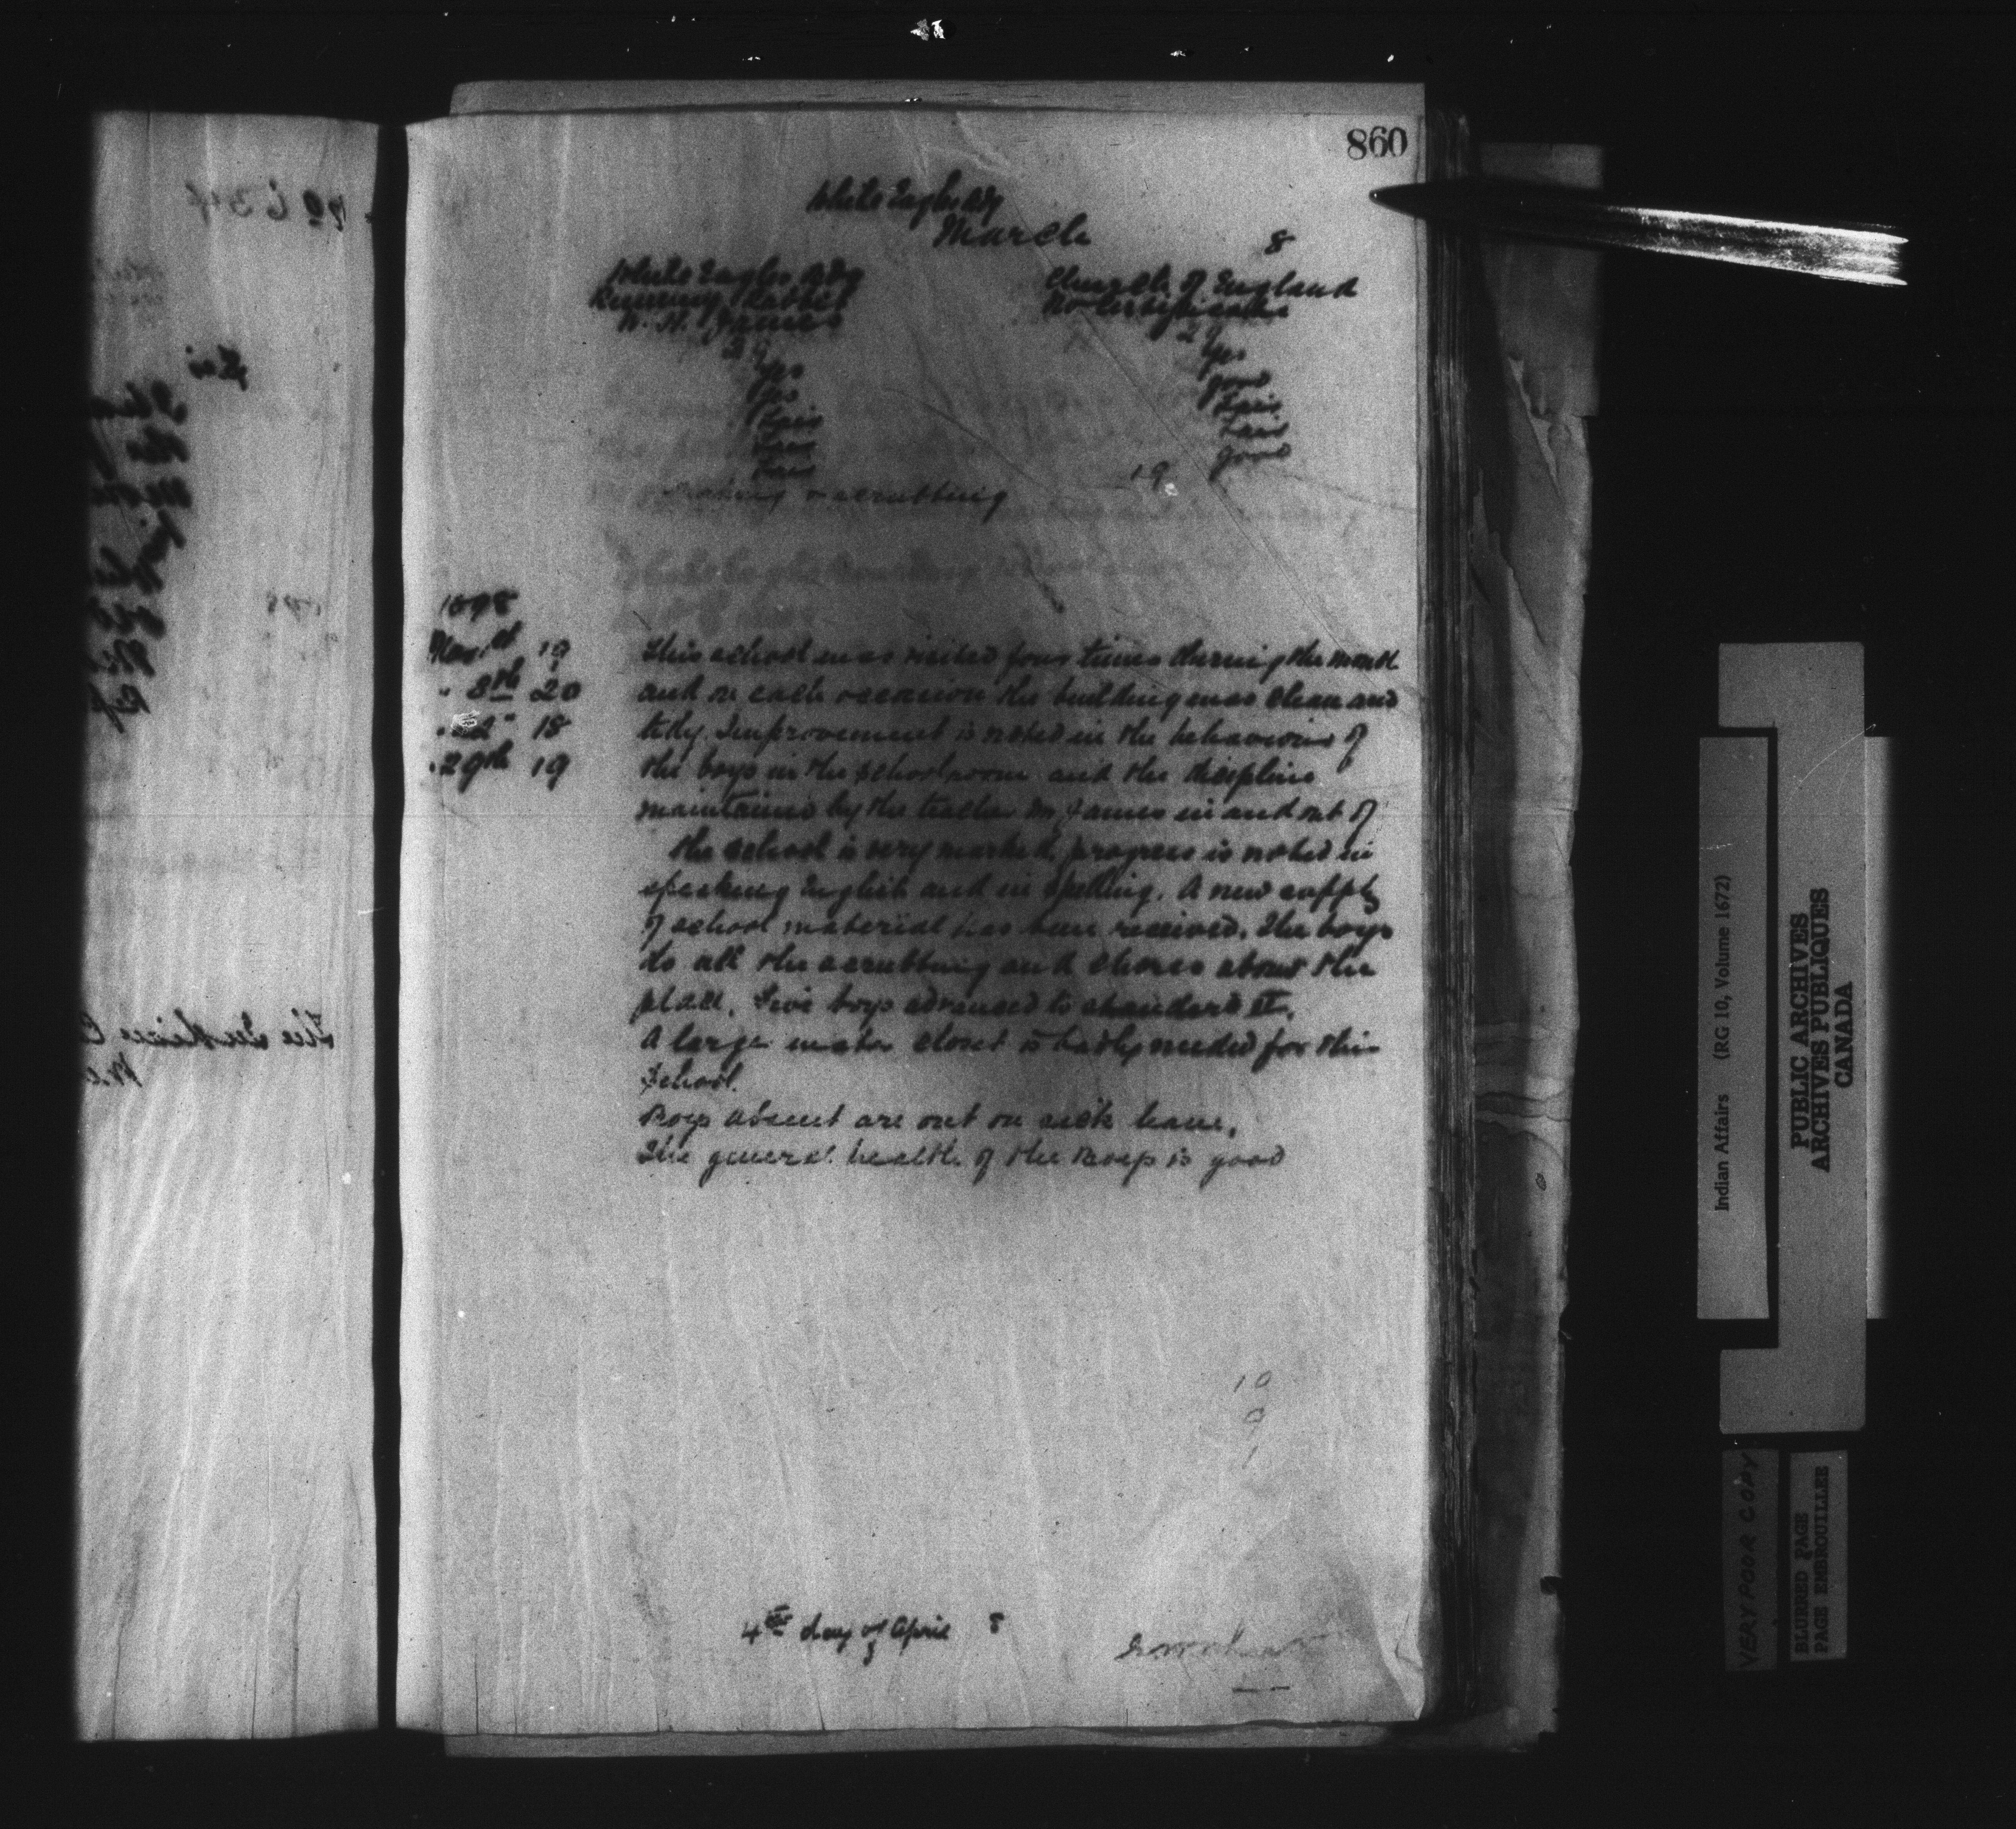 860
White Eagles Bdg
March 8
White Eagles Bdg Church of England
Running Rabbit No Certificate
W. H. James
29 29
Yes Yes
Yes good
Fair Fair
Fair Fair
Fair good
Baking & scrubbing 19
1898
Mar. 1st 19 This school was visited four times during the month
" 8th 20 and on each occasion the building was clean and
" 22" 18 tidy. Improvement is noted in the behaviour of
" 29th 19 the boys in the schoolroom and the discipline
maintained by the teacher Mr James in and out of
the school is very marked, progress is noted in
speaking English and in spelling. A new supply
of school material has been received. The boys
do all the scrubbing and chores about the
place. Five boys advanced to standard II.
A large water closet is badly needed for this
School.
Boys absent are out on sick leave.
The general health of the Boys is good
10
9
1
4th day of April 8
Indian Affairs (RG 10, Volume 1672)
PUBLIC ARCHIVES
ARCHIVES PUBLIQUES
CANADA
VERY POOR COPY
BLURRED PAGE
PAGE EMBROUILLEE